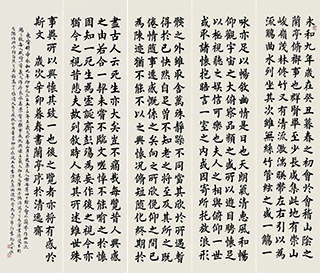 永和九年歲在癸丑暮春之初會於會稽山陰之
蘭亭脩禊事也群賢畢至少長咸集此地有崇山
峻嶺茂林脩竹又有清流激湍映帶左右引以為
流觴曲水列坐其次雖無絲竹管絃之盛一觴一
咏亦足以暢敘幽情是日也天朗氣清惠風和暢
仰觀宇宙之大俯察品類之盛所以遊目騁懷足
以極視聽之娛信可樂也夫人之相與俯仰一世
或取諸懷抱晤言一室之內或因寄所托放浪形
骸之外雖取舍萬殊靜躁不同當其欣於所遇暫
得於己快然自足曾不知老之將至及其所之既
倦情隨事遷感慨係之矣向之所欣俛仰之間已
為陳迹猶不能不以之興懷況脩短隨化終期於
盡古人云死生亦大矣豈不痛哉每覽昔人興感
之由若合一契未嘗不臨文嗟悼不能喻之於懷
固知一死生為虛誕齊彭殤為妄作後之視今亦
猶今之視昔悲夫故列敘時人錄其所述雖世殊
事異所以興懷其致一也後之覽者亦將有感於
斯文 歲次辛卯暮春書蘭亭序於清逸齋